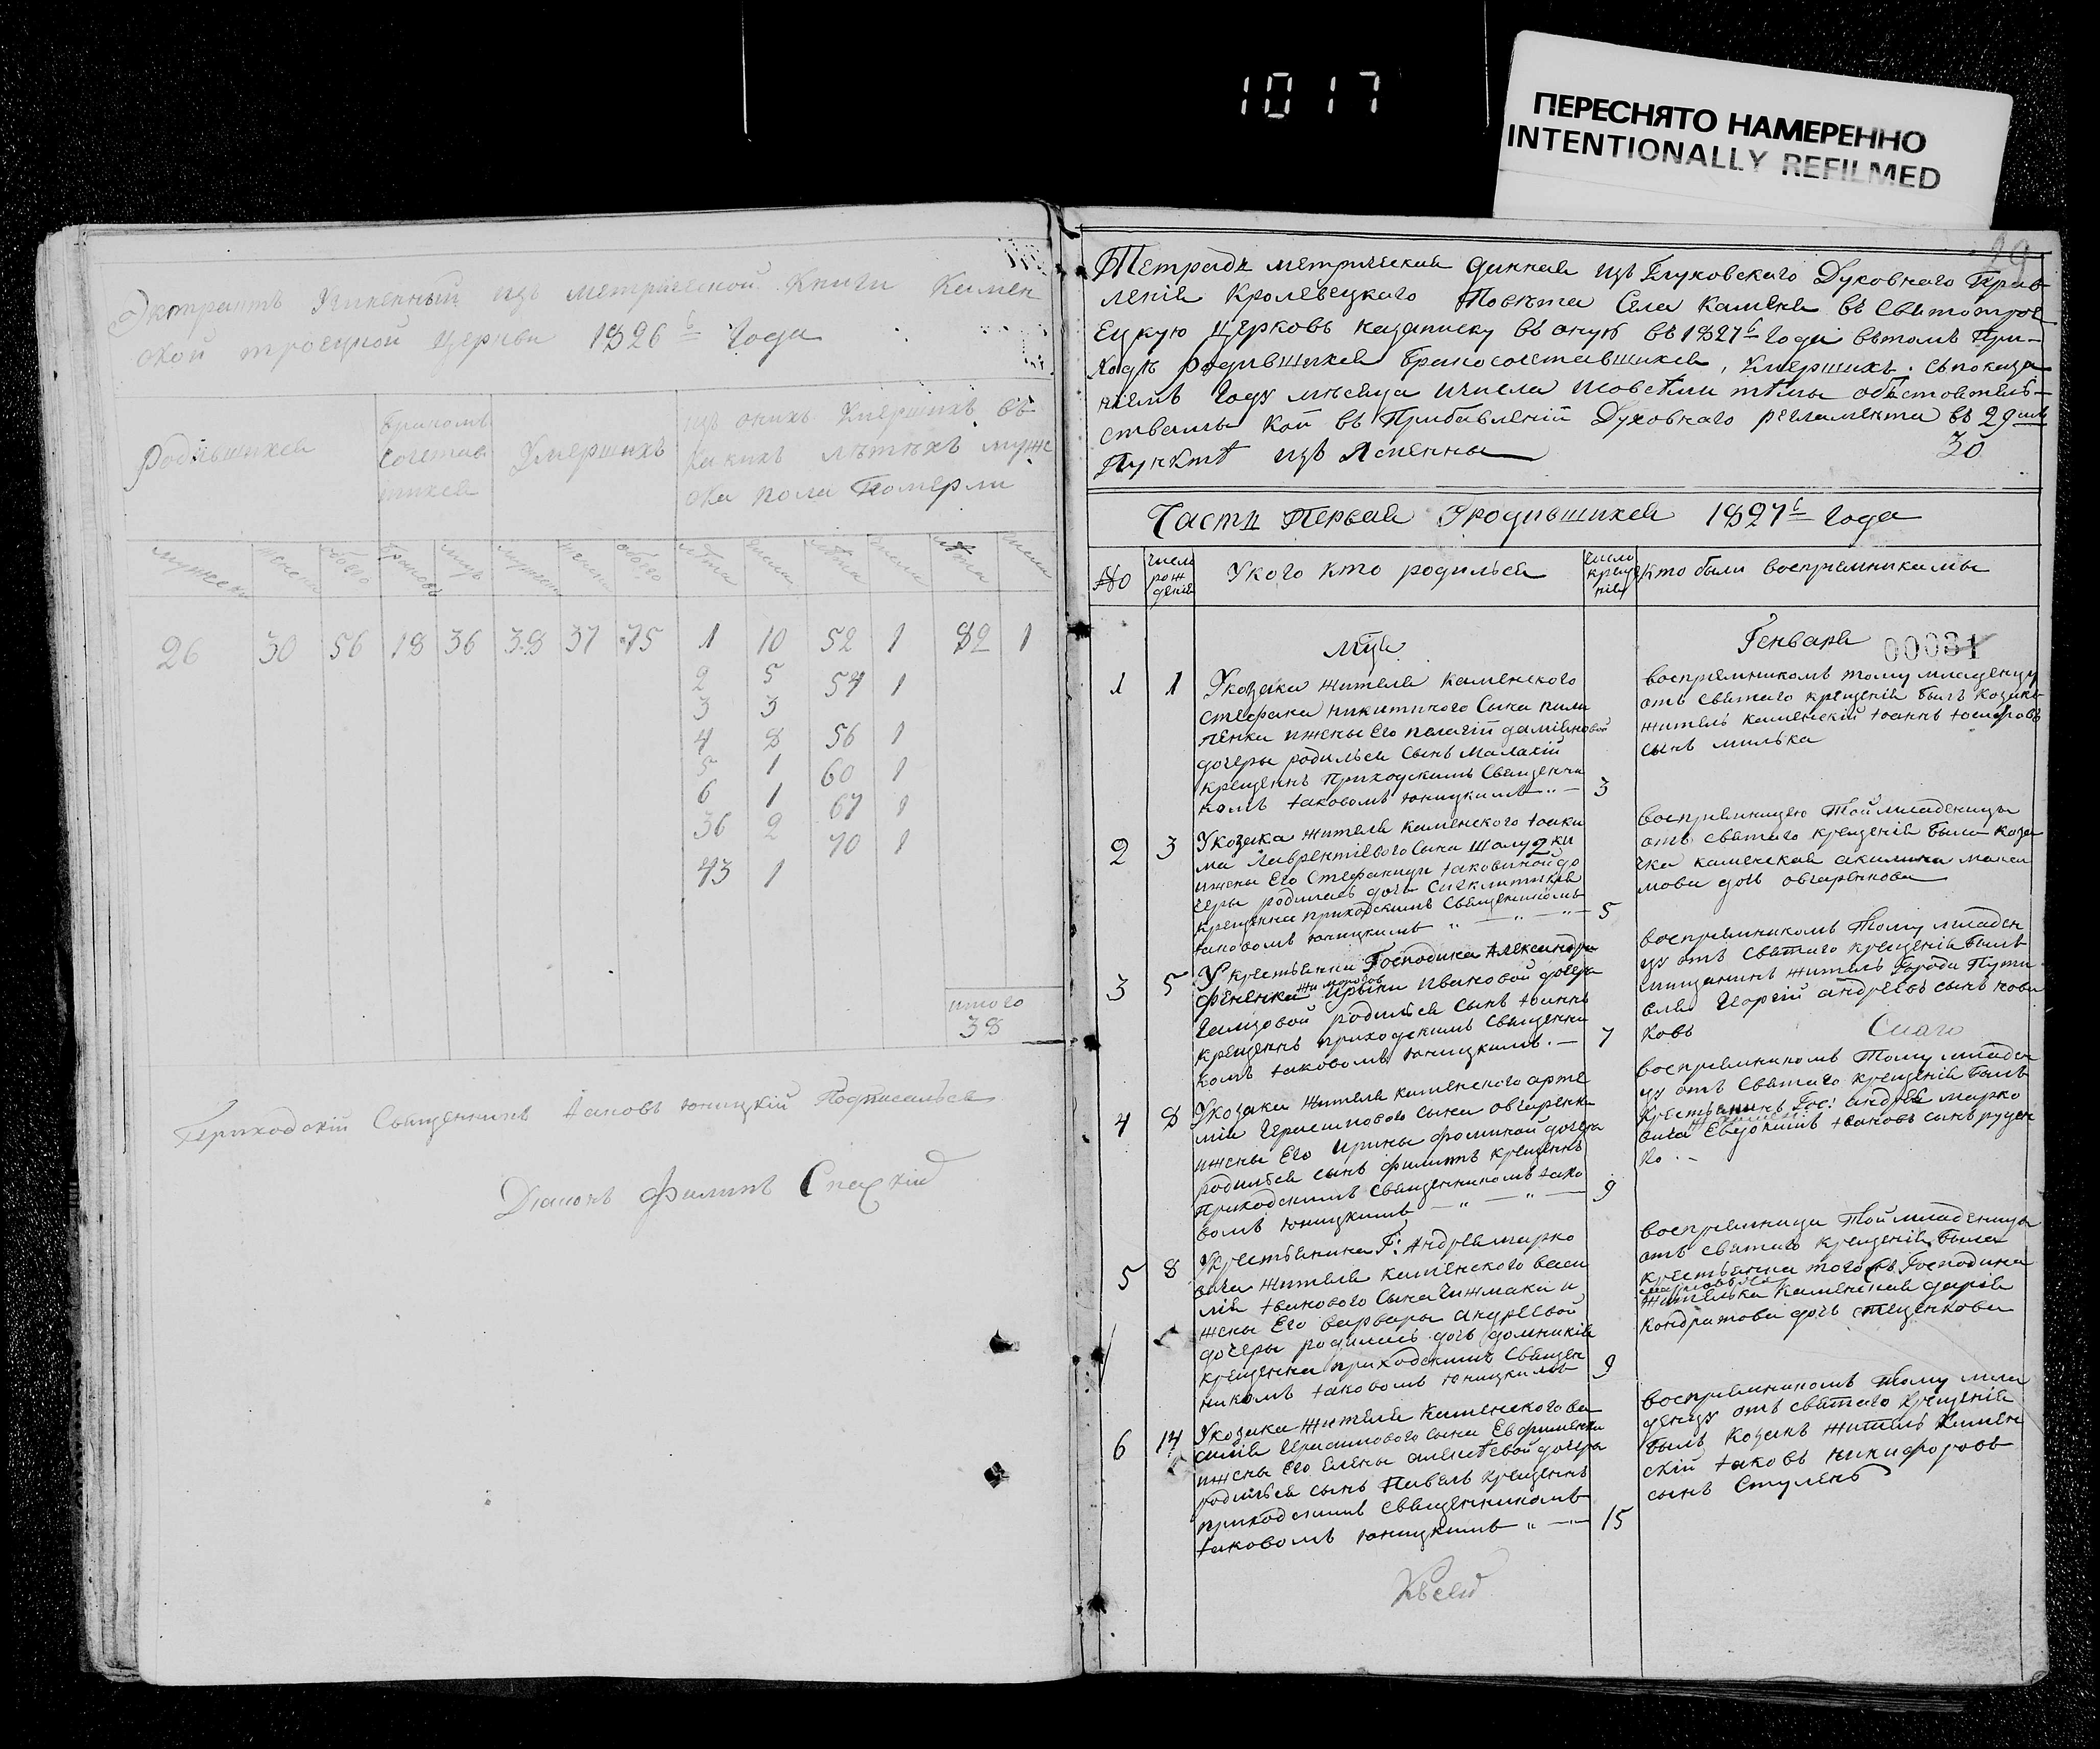 1017
ПЕРЕСНЯТО НАМЕРЕННО
INTENTIONALLY REFILMED
Экстрактъ Учиненный изъ метрической Книги Камен
ской троецкой Церкви 1826 Года
Родившихся
бракомъ
сочетав
шихся
Умершихъ
изъ онихъ Умершихъ въ
какихъ лѣтехъ муже
ска пола Померли
мужеск женска обоего браковъ лицъ мужеск женска обоего лѣта число лѣта число лѣта число
26 30 56 18 36 38 37 75 1 10 52 1 82 1
2 5 54 1
3 3
4 8 56 1
5 1 60 1
6 1 67 1
36 2 70 1
43 1
итого
38
Приходскій Священникъ Іаковъ Юницкій Подписался
Діаконъ Филипъ Спаскій
Тетрадь метрическая данная изъ Глуховского Духовного Прав
ленія Кролевецкого Повѣта Села Каменя въ Святотрое
Ецкую Церковъ назаписку въ оную въ 1827 Годѣ вътомъ При-
ходѣ Родившихся Бракосочетавшихся, Умершихъ. съпоказа
ніемъ Году мѣсяца ичисла исовсѣми тѣмы обстоятель-
ствамы кой въ Прибавленій Духовного регламента въ 29 имъ
Пунктѣ изъ Яснены
30
Часть Первая Уродившихся 1827 Года
№ число рож денія Укого кто родилься число креще нія кто были воспріемникамы
Генваря 00031
1 1 Укозака жителя Каменского
стефана никитиного Сына пили
пенка ижены Его пелагій даміяновой
дочеры родилься Сынъ Малахій
крещеннъ Приходскимъ Священни
комъ Іаковомъ Юницкимъ 3
воспріемникомъ тому младенцу
отъ Святаго крещенія былъ козакъ
житель каменскій Іоаннъ Іосифовъ
сынъ милька
2 3 Укозака жителя каменского Іоаки
ма Лаврентіевого Сына
ижены Его Стефаниди Іаковиной до
черы родилась дочь Сигклитикія
крещенна приходскимъ Священикомъ
Іаковомъ Юницкимъ 5
воспріемницею той младеницы
отъ святаго крещенія была коза
чка каменская акилина макси
мова дочь овчаренкова
3 5 У крестьянки Господина Александра
фененка Ирыни Ивановой дочеры
родилься сынъ Іоаннъ
крещеннъ приходскимъ Священни
комъ Іаковомъ Юницкимъ. 7
воспріемникомъ Тому младен
цу отъ Святаго крещенія былъ
мищанинъ житель Города Пути
вля Георгій андрѣевъ сынъ нови
ковъ
4 8 Укозака жителя каменского арте
мія Герасимового Сына овчаренка
ижены Его Ирины фоминой дочеры
родилься сынъ филипъ крещеннъ
Приходскимъ Священникомъ Іако
вомъ Юницкимъ 9
воспріемникомъ Тому младен
цу отъ Святаго крещенія былъ
крестьянинъ Гос: андрея марко
вича Евдокимъ Івановъ сынъ руден
ко
5 8 Укрестьянина Г: Андрея марко
вича жителя каменского васи
лія Іванового Сына Чижмака и
жены Его варвары андрѣевой
дочеры родилась дочь домникія
крещенна приходскимъ Священ
никомъ Іаковомъ Юницкимъ 9
воспріемница Той младеницы
отъ святаго крещенія была
крестьянка тогожъ Господина
жителька Каменская дарія
кондратова дочь стеценкова
6 14 Укозака жителя Каменского ва
силія Герасимового сына Евфименка
ижены Его Елены алексѣевой дочеры
родилься сынъ Павелъ крещеннъ
приходскимъ Священникомъ
Іаковомъ Юницкимъ 15
воспріемникомъ Тому мла
денцу отъ святаго крещенія
былъ козакъ житель Камен
скій Іаковъ никифоровъ
сынъ Ступень